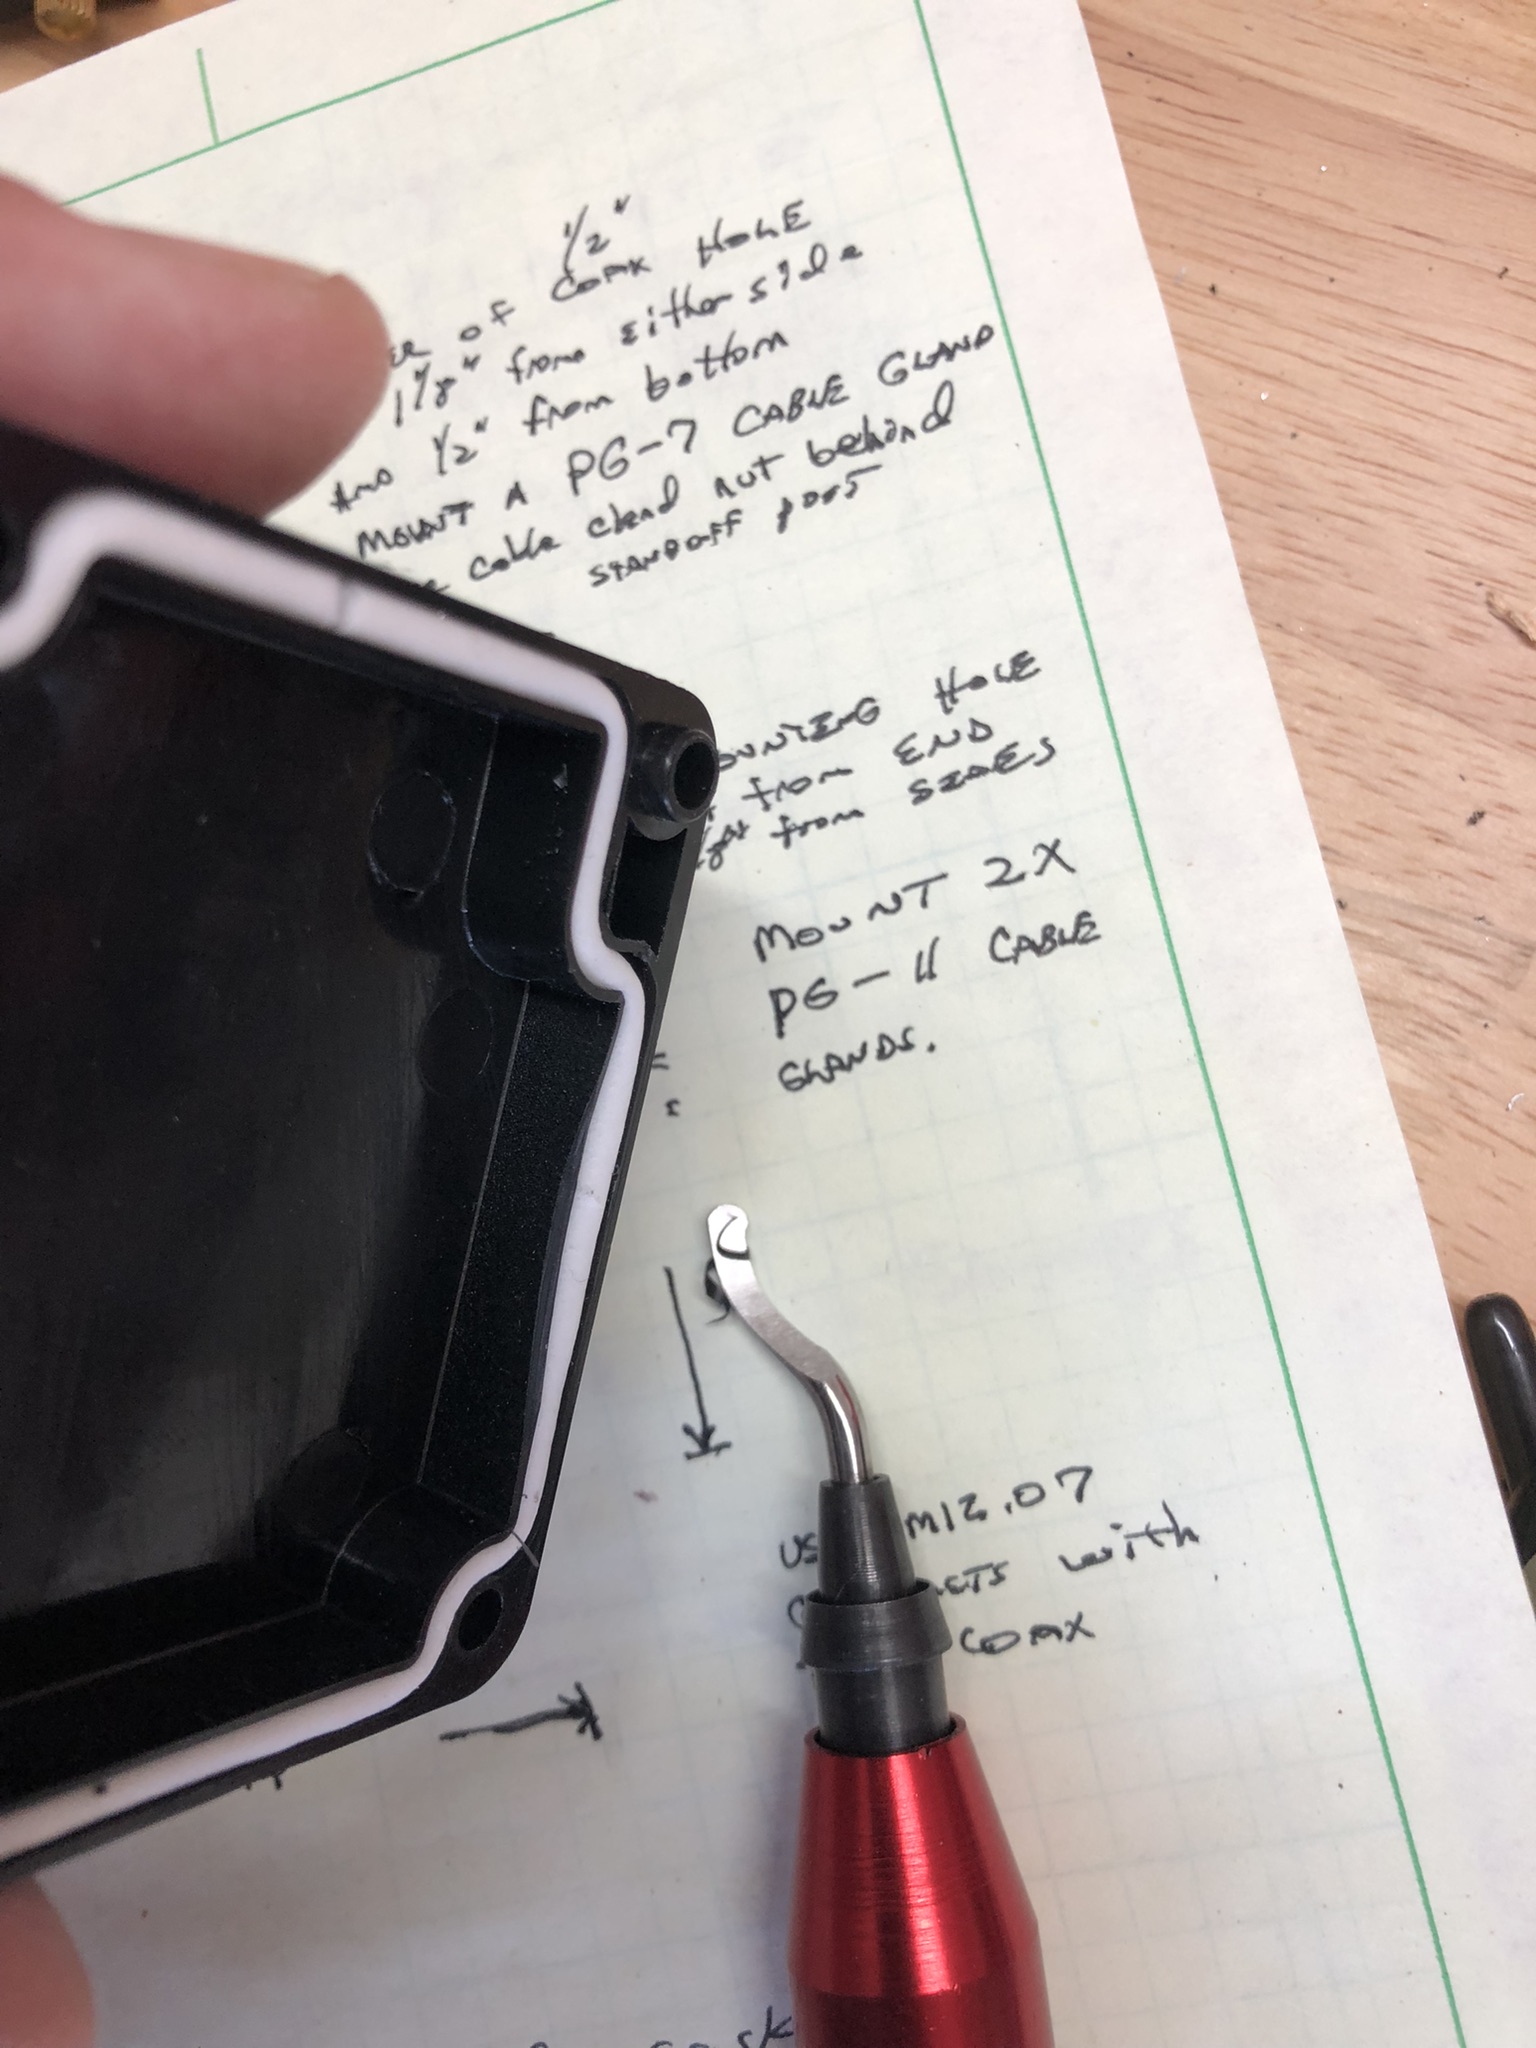 1/2"
of COAX HOLE
1 1/8" from either side
AND 1/2" from bottom
MOUNT A PG-7 CABLE GLAND
cable gland nut behind
STANDOFF post
HOLE
from END
from SIDES
MOUNT 2X
PG-11 CABLE
GLANDS.
M12.07
with
COAX